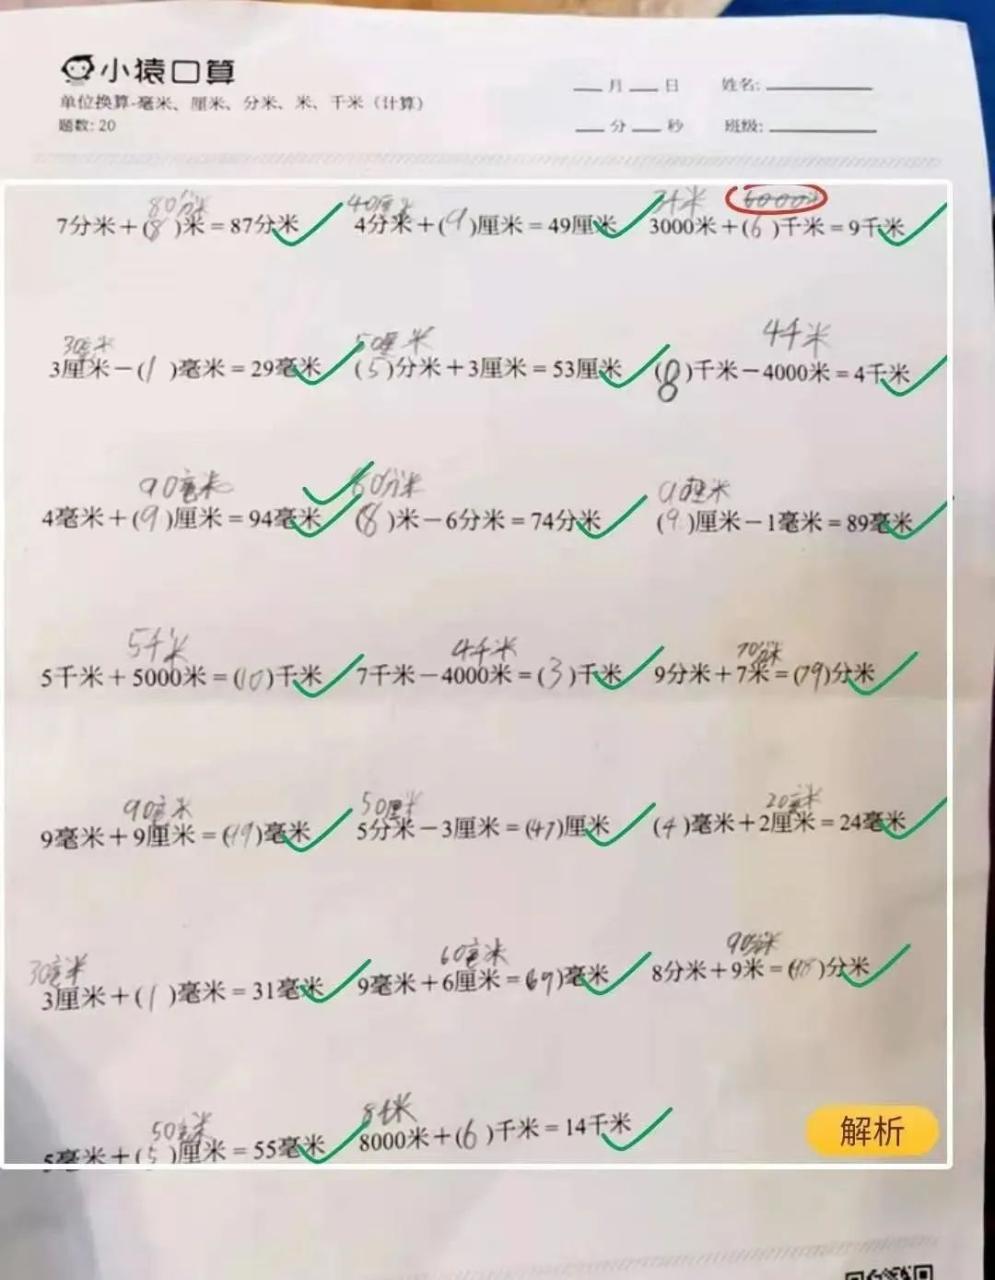 小猿口算
单位换算-毫米、厘米、分米、米、千米（计算）
题数: 20
__月__日 姓名:
__分__秒 班级:
80分米 40厘米 3千米 6000米
7分米+(8)米=87分米 4分米+(9)厘米=49厘米 3000米+(6)千米=9千米
30毫米 50厘米 4千米
3厘米-(1)毫米=29毫米 (5)分米+3厘米=53厘米 (8)千米-4000米=4千米
90毫米 80分米 90厘米
4毫米+(9)厘米=94毫米 (8)米-6分米=74分米 (9)厘米-1毫米=89毫米
5千米 4千米 70分米
5千米+5000米=(10)千米 7千米-4000米=(3)千米 9分米+7米=(79)分米
90毫米 50厘米 20毫米
9毫米+9厘米=(99)毫米 5分米-3厘米=(47)厘米 (4)毫米+2厘米=24毫米
30毫米 60毫米 90分米
3厘米+(1)毫米=31毫米 9毫米+6厘米=(69)毫米 8分米+9米=(98)分米
50毫米 8千米
5毫米+(5)厘米=55毫米 8000米+(6)千米=14千米
解析